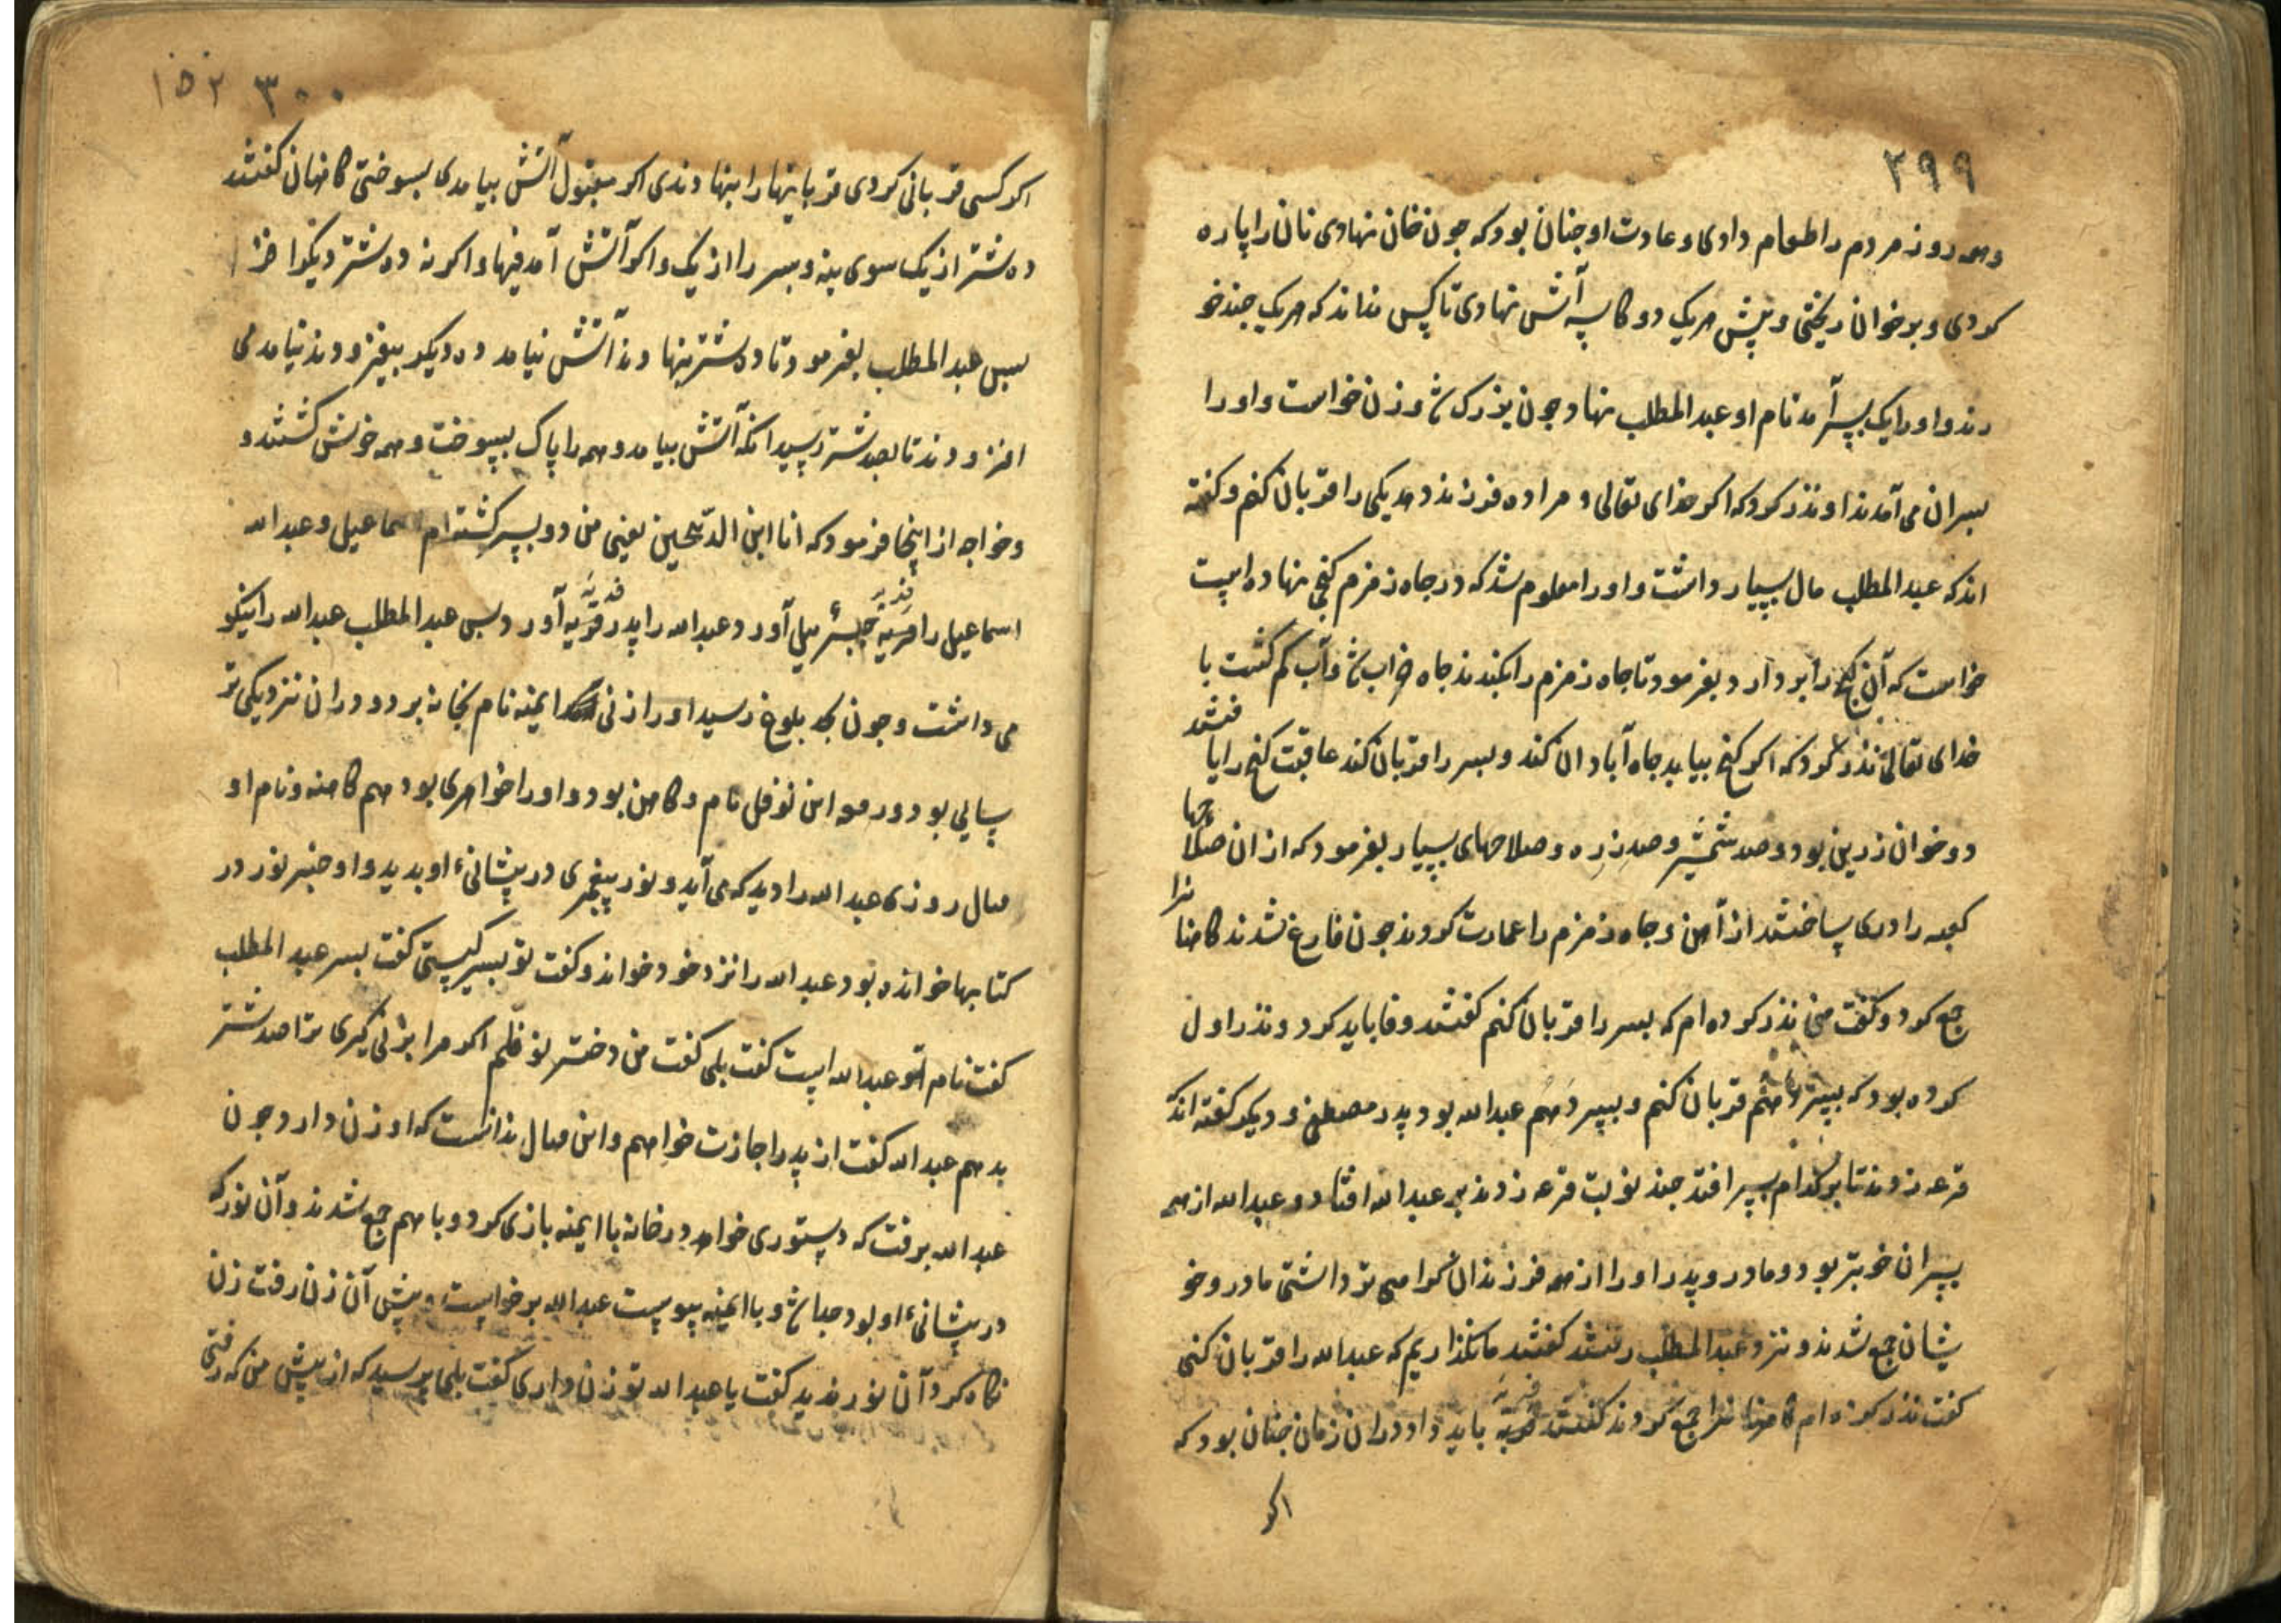 ۲۹۹
وهمه روز مردم را طعام دادی و عادت او جنان بود که جون خان نهادی نان را پاره
کردی و بر خوان ریختی و پیش هریک دو کاسه آش نهادی تا کس نداند که هریک جند خو
رند و او را یک پسر آمد نام او عبد المطلب نهاد جون بزرک شد و زن خواست و او را
پسران می آمدند او نذر کرد که اکر خدای تعالی مرا ده فرزند دهد یکی را قربان کنم و کفته
اند که عبد المطلب مال بسیار داشت و او را معلوم شد که در جاه زمزم کنجی نهاده است
خواست که آن کنج را بر دارد بفرمود تا جاه زمزم را بکندند جاه خراب شد و آب کم کشت با
خدای تعالی نذر کرد که اکر کنج بیابد جاه آبادان کند و پسر را قربان کند عاقبت کنج را یا فتند
دو خوان زرین بود و صد شمشیر و صد زره و صلاحهای بسیار بفرمود که از ان صلاحها
کعبه را دری بساختند از آهن و جاه زمزم را عمارت کردند جون فارغ شدند کاهنا نرا
جمع کرد و کفت من نذر کرده ام که پسر را قربان کنم کفتند وفا باید کرد و نذر اول
کرده بود که پسر دهم قربان کنم و پسر دهم عبد الله بود پدر مصطفی و دیکر کفته اند که
قرعه زدند تا بر کدام پسر افتد جند نوبت قرعه زدند بر عبد الله افتاد و عبد الله از همه
پسران خوبتر بود و مادر و پدر او را از همه فرزندان کرامی تر داشتی مادر و خو
یشان جمع شدند و نزد عبد المطلب رفتند کفتند ما نکذاریم که عبد الله را قربان کنی
کفت نذر کرده ام کاهنا نرا جمع کردند کفتند فدیه باید داد در ان زمان جنان بود که
اکر
۳۰۰ ۱۵۲
اکر کسی قربانی کردی قربانیها را بنهادندی اکر مقبول آتش بیامدی بسوختی کاهنان کفتند
ده شتر از یک سوی بنه و پسر را از یک و اکر آتش آمد فبها و اکر نه ده شتر دیکر افزا
پس عبد المطلب بفرمود تا ده شتر بنهادند آتش نیامد ده دیکر بیفزودند نیامد می
افزودند تا بصد شتر رسید انکه آتش بیامد و همه را پاک بسوخت و همه خوش کشتند و
و خواجه از اینجا فرمود که انا ابن الذبیحین یعنی من دو پسر کشته ام اسماعیل و عبد الله
اسماعیل را فدیه جبرئیل آورد و عبد الله را پدر فدیه آورد پس عبد المطلب عبد الله را نیکو
می داشت و جون بحد بلوغ رسید او را زنی ایمنه نام بخانه برد و در ان نزدیکی تر
سایی بود ورمه ابن نوفل نام و کاهن بود و او را خواهری بود هم کاهنه و نام او
مبال روزی عبد الله را دید که می آید و نور پیغمبری در پیشانیء او بدید و او خبر نور در
کتابها خوانده بود عبد الله را نزد خود خواند و کفت تو پسر کیستی کفت پسر عبد المطلب
کفت نام تو عبد الله است کفت بلی کفت من دختر نوفلم اکر مرا بزنی کیری ترا صد شتر
بدهم عبد الله کفت از پدر اجازت خواهم و این مبال ندانست که او زن دارد جون
عبد الله برفت که دستوری خواهد در خانه با ایمنه بازی کرد و با هم جمع شدند و آن نور که
در پیشانیء او بود جدا شد و با ایمنه پیوست عبد الله برخواست و پیش آن زن رفت زن
نکاه کرد آن نور ندید کفت یا عبد الله تو زن داری کفت بلی پرسید که از پیش من که رفتی